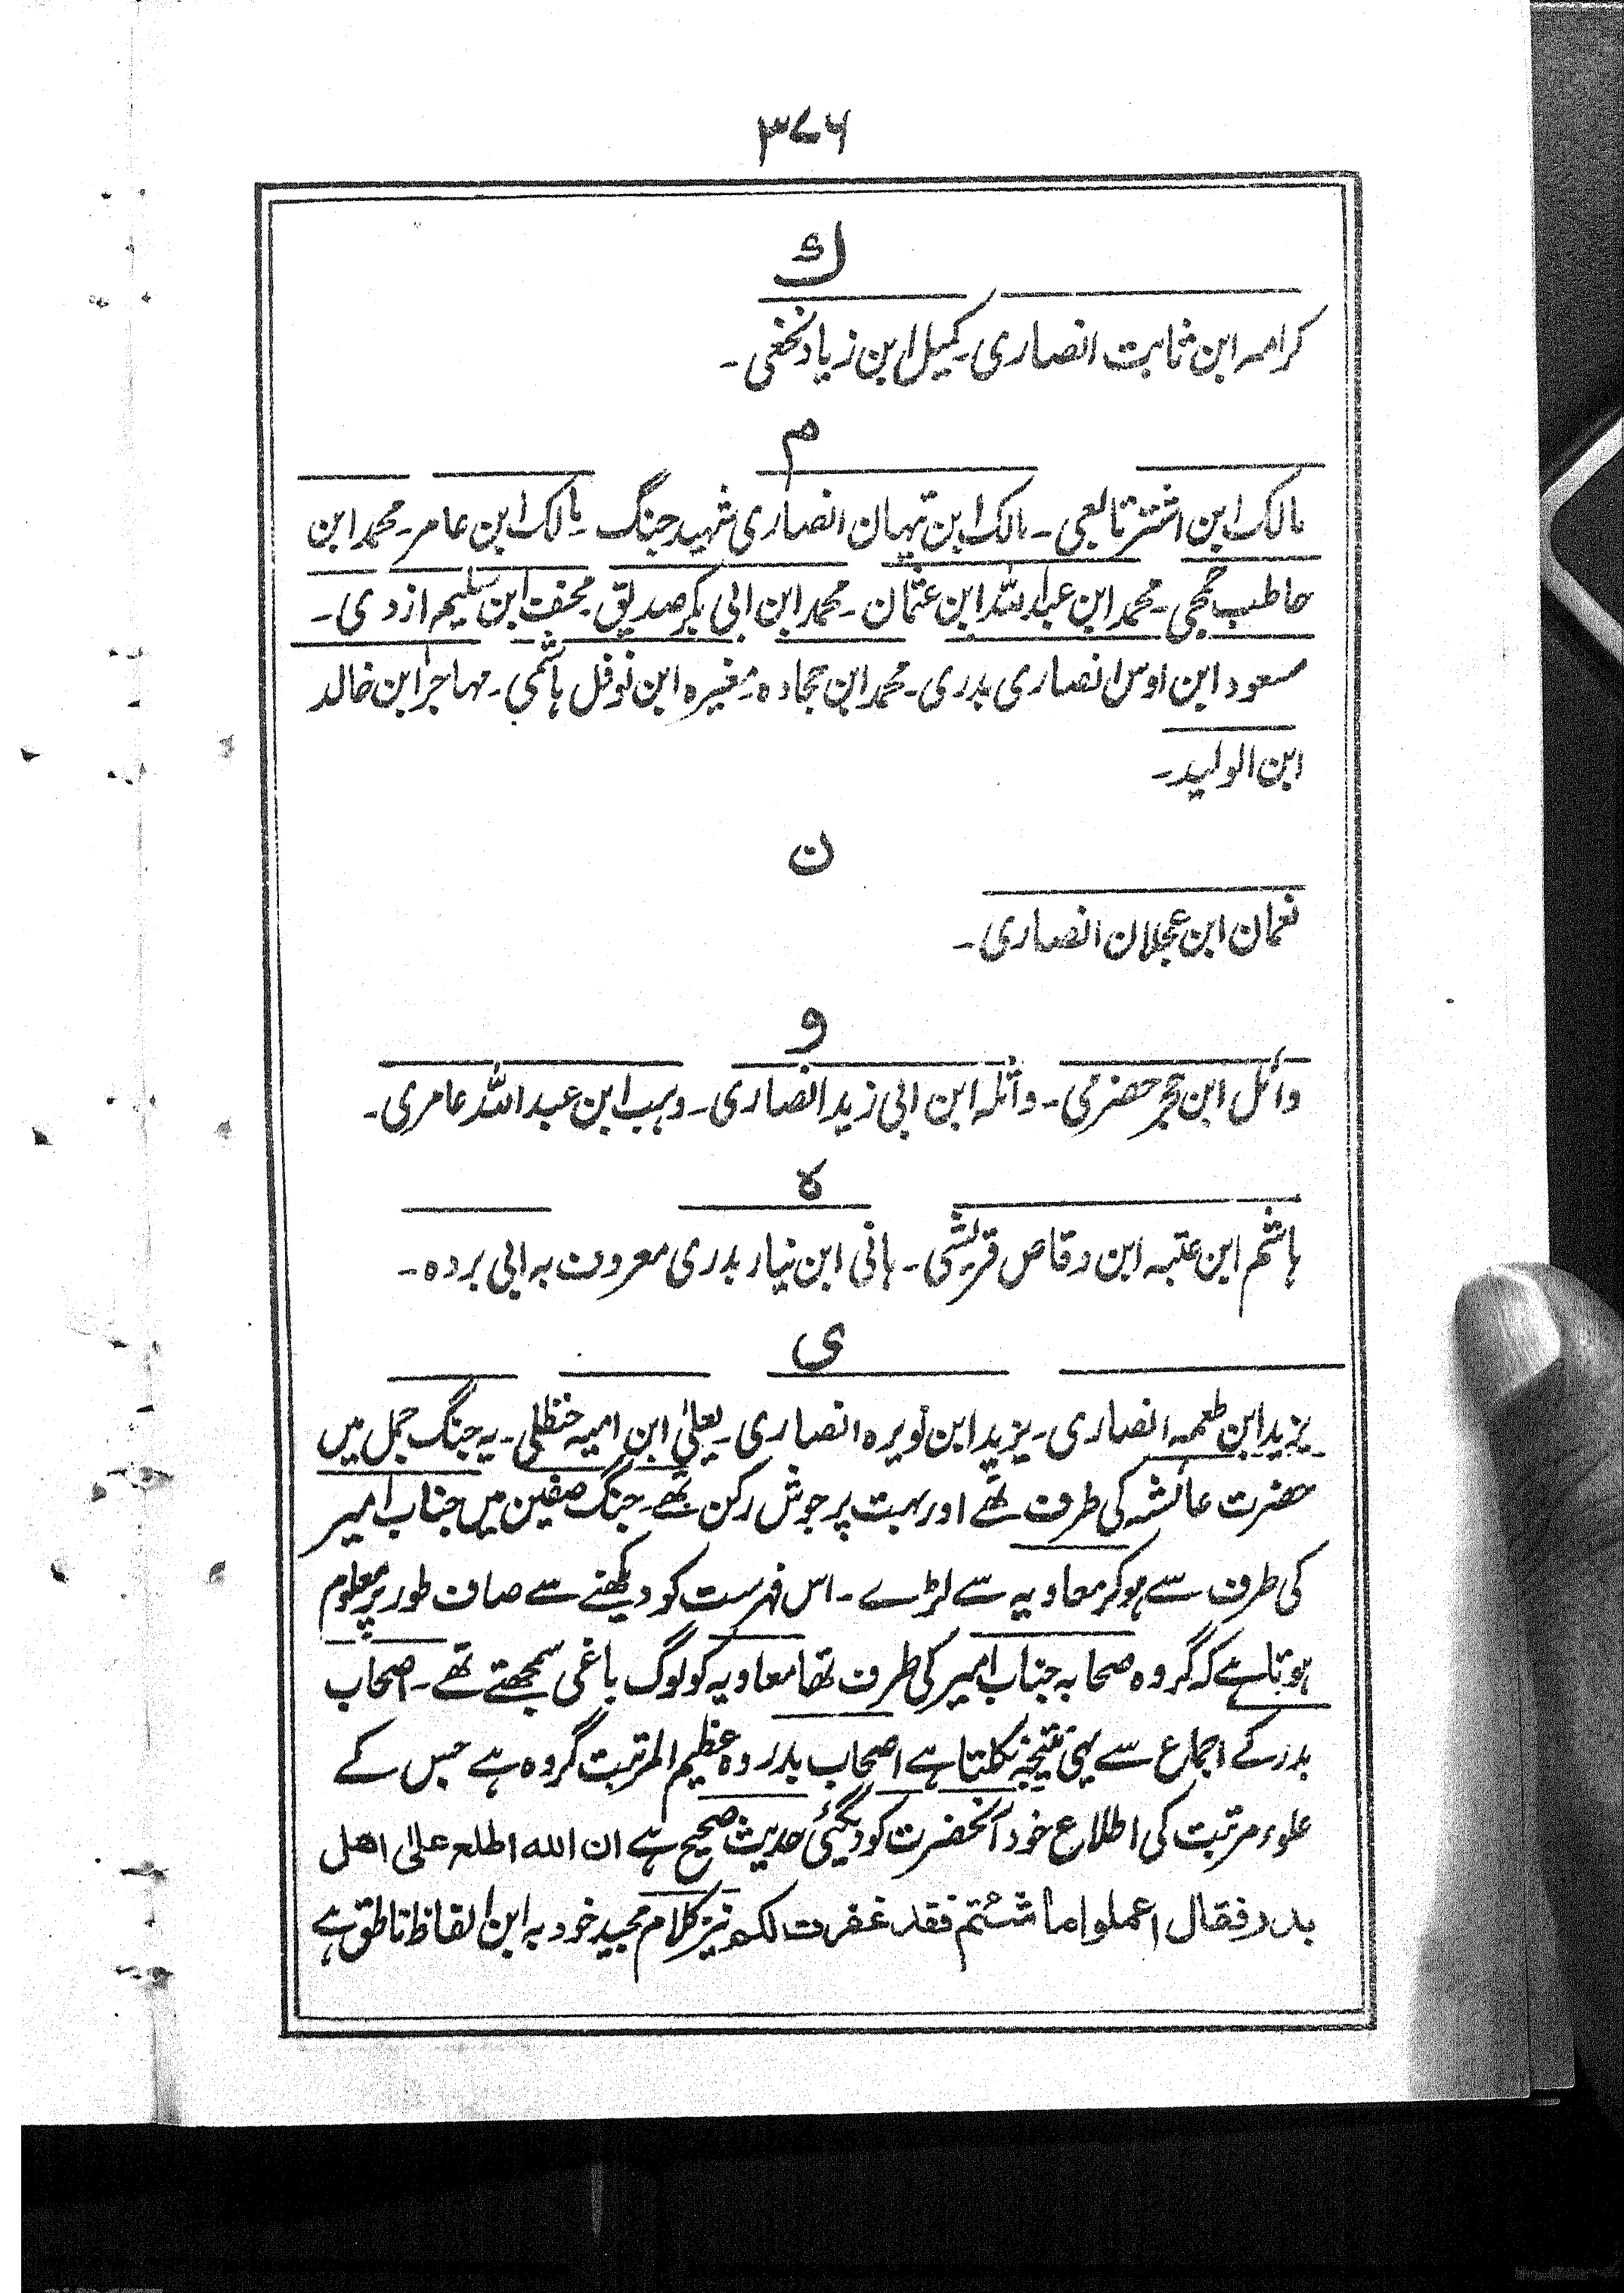 ۳۷۶
ك
کرامہ ابن ثابت انصاری۔ کمیل ابن زیاد نخعی۔
م
مالک ابن اشتر تابعی۔ مالک ابن تیہان انصاری شہید جنگ۔ مالک ابن عامر۔ محمد ابن
حاطب جمحی۔ محمد ابن عبد اللہ ابن عثمان۔ محمد ابن ابی بکر صدیق۔ مخنف ابن سلیم ازدی۔
مسعود ابن اوس انصاری بدری۔ محمد ابن حجادہ۔ مغیرہ ابن نوفل ہاشمی۔ مہاجر ابن خالد
ابن الولید۔
ن
نعمان ابن عجلان انصاری۔
و
وائل ابن حجر حضرمی۔ واثلہ ابن ابی زید انصاری۔ وہب ابن عبد اللہ عامری۔
ہ
ہاشم ابن عتبہ ابن وقاص قریشی۔ ہانی ابن نیار بدری معروف بہ ابی بردہ۔
ی
یزید ابن طعمہ انصاری۔ یزید ابن نویرہ انصاری۔ یعلیٰ ابن امیہ حنظلی۔ یہ جنگ جمل میں
حضرت عائشہ کی طرف تھے اور بہت پر جوش رکن تھے۔ جنگ صفین میں جناب امیر
کی طرف سے ہوکر معاویہ سے لڑے۔ اس فہرست کو دیکھنے سے صاف طور پر معلوم
ہوتا ہے کہ گروہ صحابہ جناب امیر کی طرف تھا معاویہ کو لوگ باغی سمجھتے تھے۔ اصحاب
بدر کے اجماع سے یہی نتیجہ نکلتا ہے اصحاب بدر وہ عظیم المرتبت گروہ ہے جس کے
علوء مرتبت کی اطلاع خود آنحضرت کو دیگئی حدیث صحیح ہے ان اللہ اطلع علیٰ اھل
بدر فقال اعملوا ما شئتم فقد غفرت لکم نیز کلام مجید خود بہ این الفاظ ناطق ہے